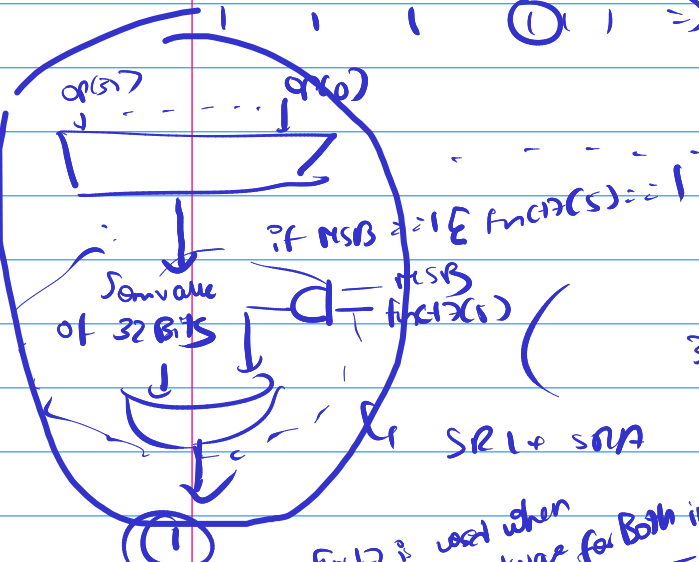 1 1 1 1 1 1 =>
op(3) - - - - - op(0)
if MSB ==1 & funct7(5)==1
Some value
of 32 Bits
MSB
funct7(5)
SRL + SRA
1
is used when
for Both